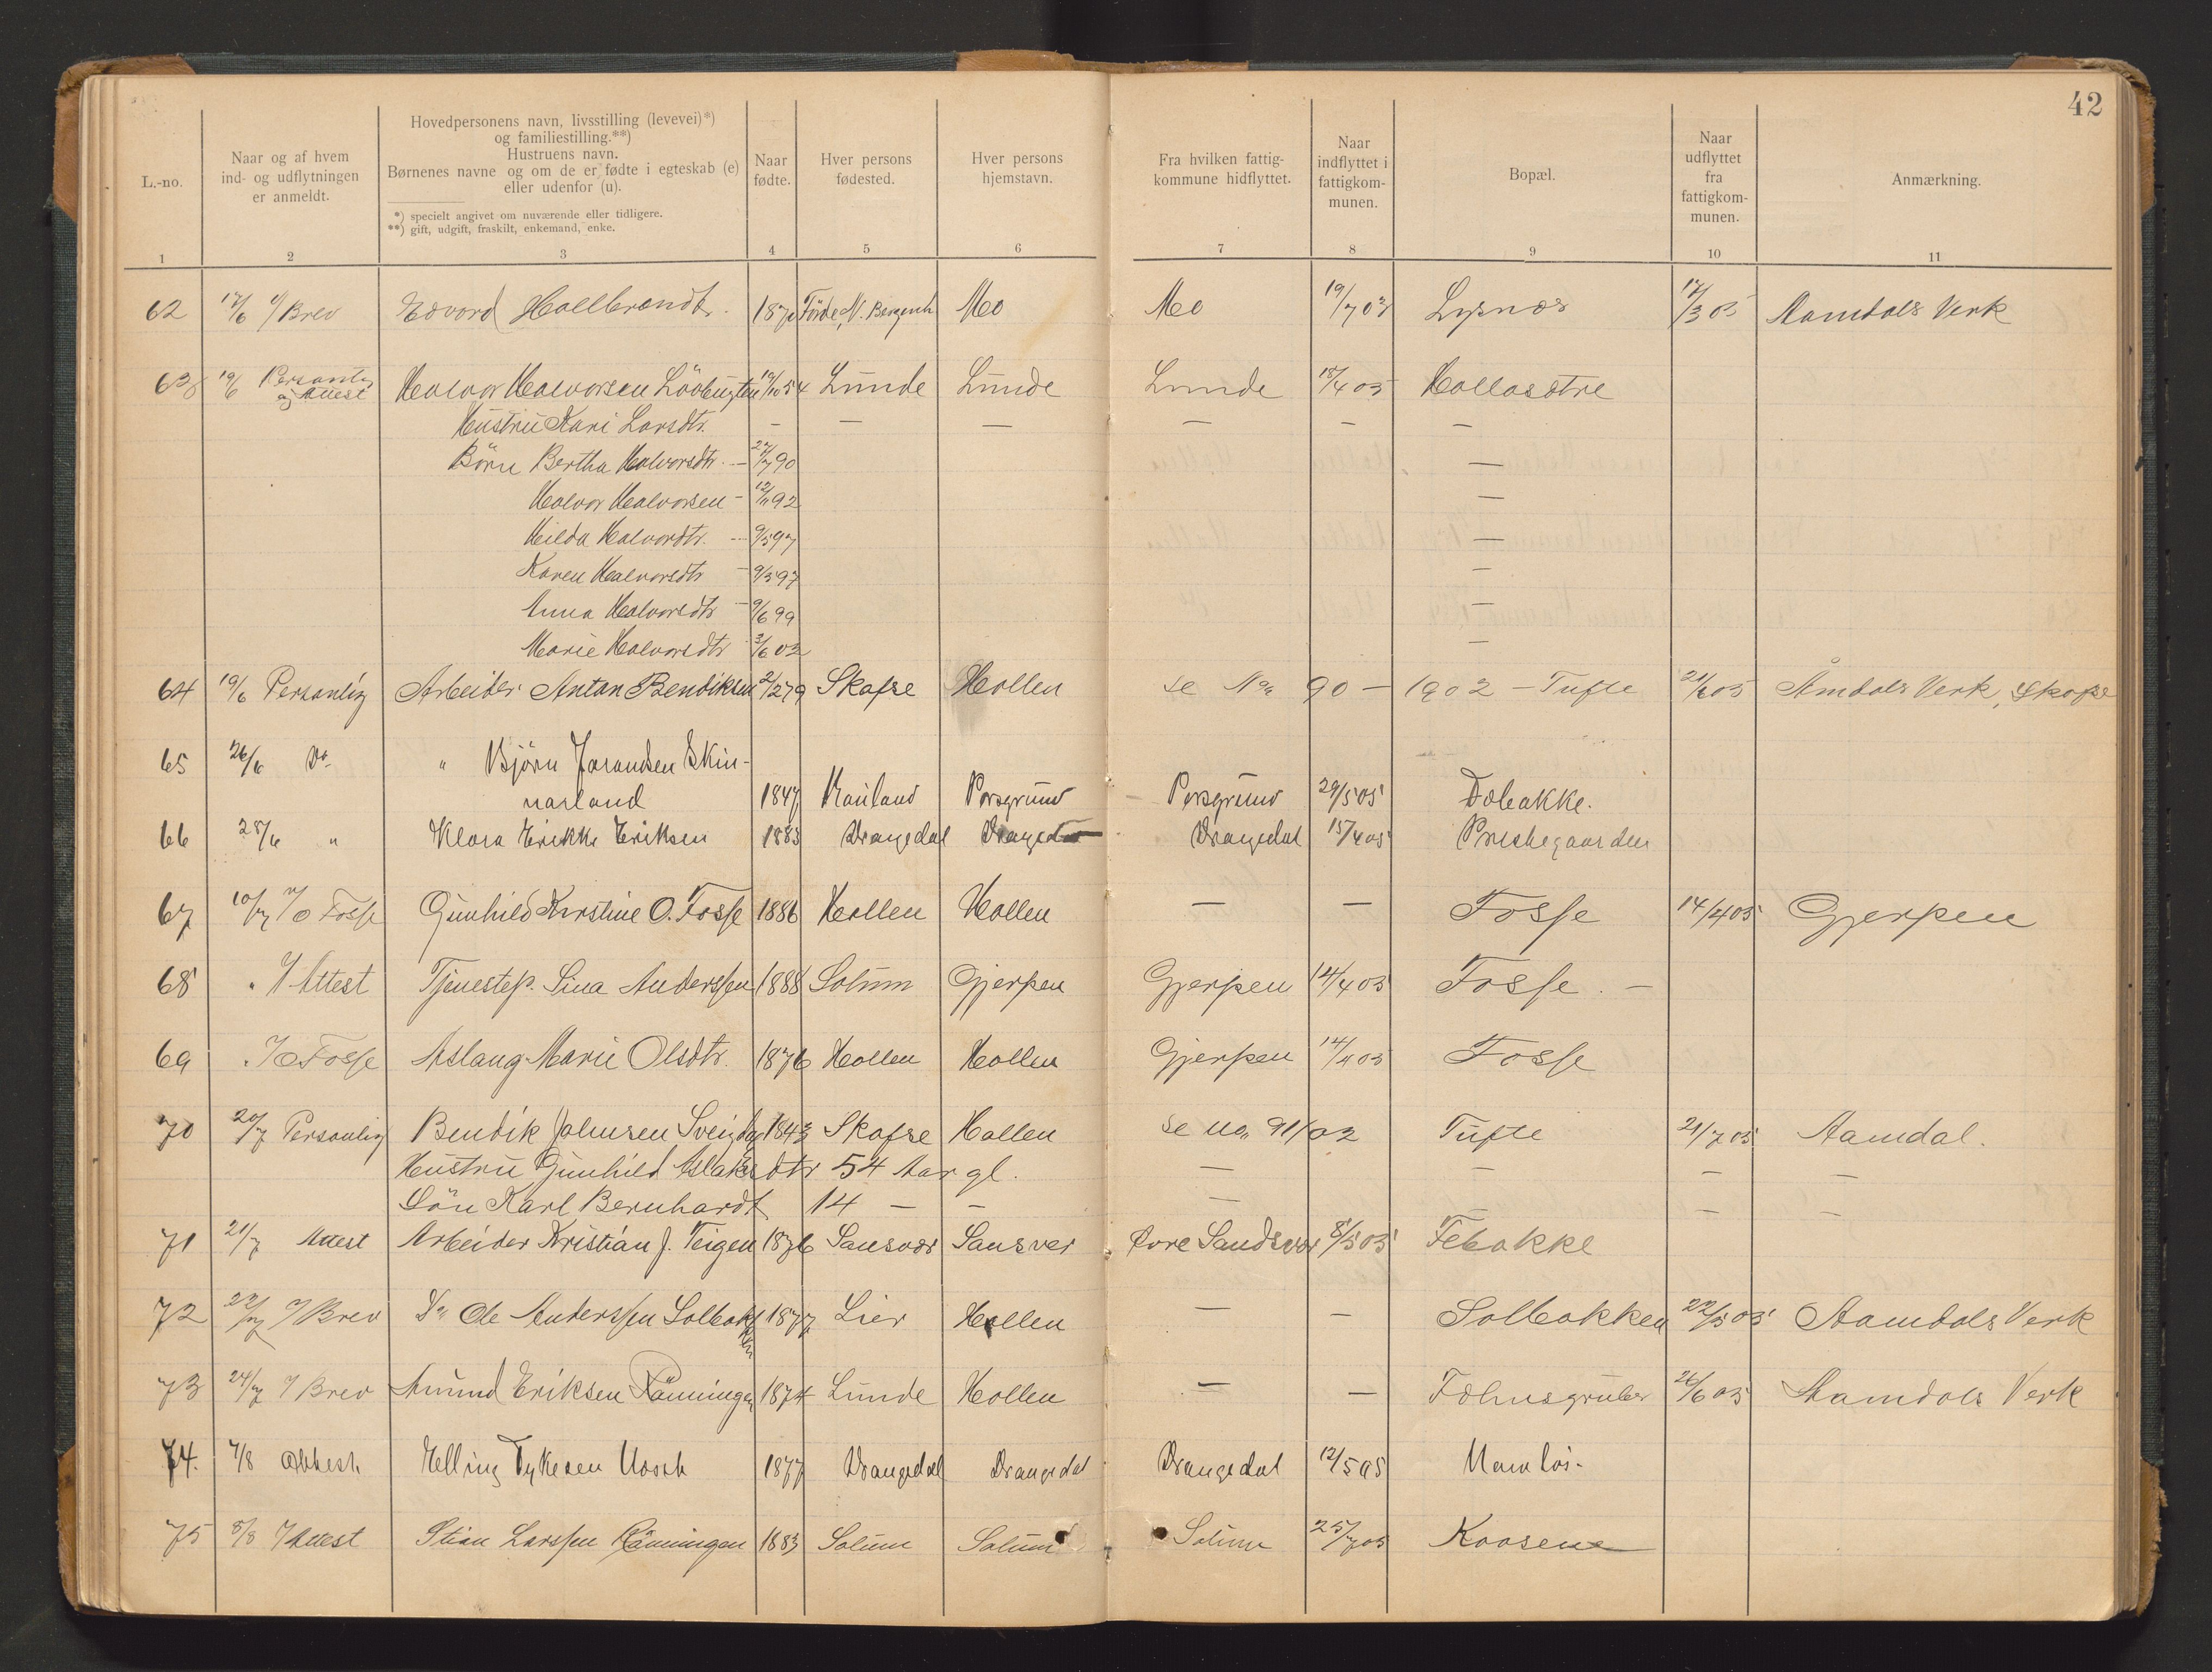 42
L.-no.
Naar og af hvem
ind- og udflytningen
er anmeldt.
Hovedpersonens navn, livsstilling (levevei)*)
og familiestilling.**)
Hustruens navn.
Børnenes navne og om de er fødte i egteskab (e)
eller udenfor (u).
*) specielt angivet om nuværende eller tidligere.
**) gift, udgift, fraskilt, enkemand, enke.
Naar
fødte.
Hver persons
fødested.
Hver persons
hjemstavn.
Fra hvilken fattig-
kommune hidflyttet.
Naar
indflyttet i
fattigkom-
munen.
Bopæl.
Naar
udflyttet
fra
fattigkom-
munen.
Anmærkning.
1 2 3 4 5 6 7 8 9 10 11
62 17/6 Brev Edvard Hallbrandt. 1870 Förde, N. Bergenh Mo Mo 19/7 03 Lysnæs 17/3 05 Aamdals Verk
63 19/6 Personlig og Attest Halvor Halvorsen 19/10 54 Lunde Lunde Lunde 15/4 05 Hollasætre
Hustru Kari Larsdtr. – – – – – –
Börn Bertha Halvorsdtr. – 27/7 90 –
Halvor Halvorsen – 12/11 92 –
Hilda Halvordtr. – 9/5 97 –
Karen Halvorsdtr – 9/5 97 –
Anna Halvorsdtr – 9/6 99 –
Marie Halvorsdtr 3/6 02 –
64 19/6 Personlig Arbeider Anton Bendiksen 2/2 79 Skafse Hollen se No 90 – 1902 – Tufte 21/6 05 Åmdals Verk, Skafse
65 26/6 Do " Björn Jarandsen Skin-
narland 1847 Rauland Porsgrund – Porsgrund 29/5 05 Dalbakke.
66 28/6 " Klara Erikke Eriksen 1883 Drangedal Drangedal Drangedal 15/4 05 Prestegaarden
67 10/7 O Fosse Gunhild Kirstine O. Fosse 1886 Hollen Hollen – – Fosse 14/4 05 Gjerpen
68 " Attest Tjenestep. Lina Anderssen 1888 Solum Gjerpen Gjerpen 14/4 05 Fosse. –
69 " O Fosse Aslaug Marie Olsdtr. 1876 Hollen Hollen Gjerpen 14/4 05 Fosse
70 20/7 Personlig Bendik Johnsen 1843 Skafse Hollen se no 91/02 Tufte 21/7 05 Aamdal.
Hustru Gunhild Aslaksdtr 54 Aar gl. – – – –
Sön Karl Bernhardt 14 – – – – –
71 21/7 Attest Arbeider Kristian J. Teigen 1876 Sansvær Sansver Øvre Sandsvær 8/5 05 Febakke
72 22/7 Brev Do Ole Anderssen Solbakken 1877 Lier Hollen – – Solbakken 22/5 05 Aamdals Verk
73 24/7 Brev Amund Eriksen Rönningen 1874 Lunde Hollen – – Fehnsgruber 26/6 05 Aamdals Verk
74. 7/8 Attest. Elling Tykesen 1877 Drangedal Drangedal Drangedal 12/5 05 Namlös.
75 8/8 Attest Stian Larssen Rönningen 1883 Solum Solum Solum 25/7 05 Kaasene